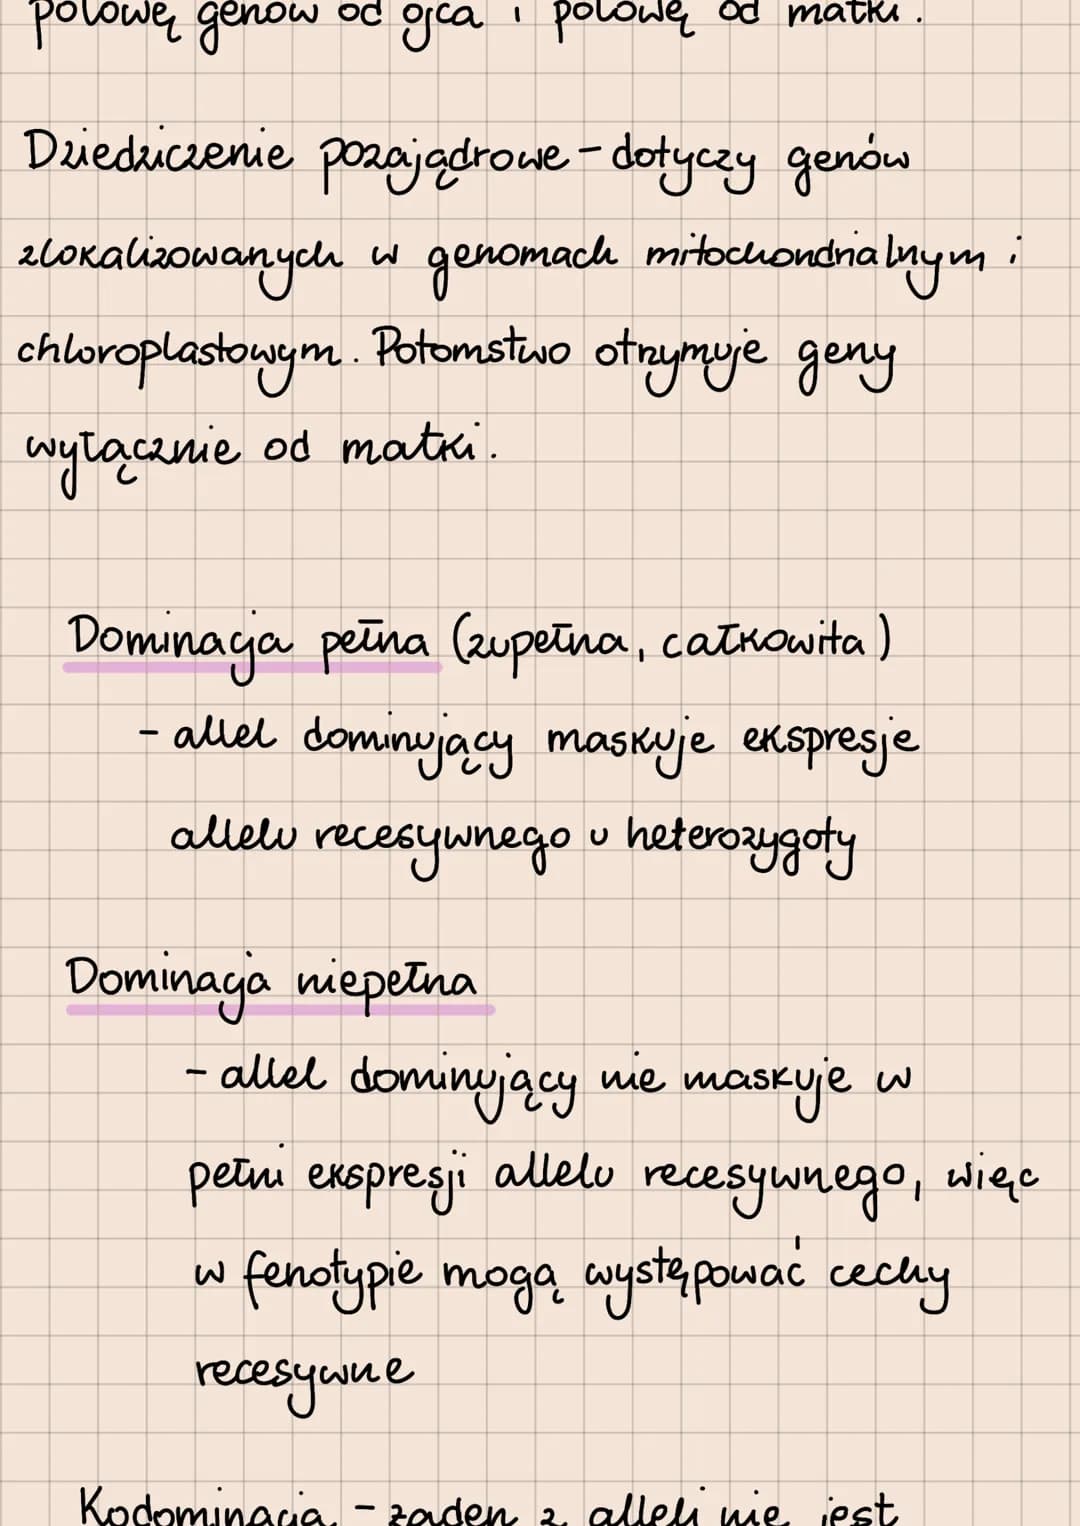 połowę genów od ojca i połowę od matki.
Dziedziczenie pozajądrowe - dotyczy genów
zlokalizowanych w genomach mitochondrialnym i
chloroplastowym. Potomstwo otrzymuje geny
wyłącznie od matki.
Dominacja pełna (zupełna, całkowita)
- allel dominujący maskuje ekspresje
allelu recesywnego u heterozygoty
Dominacja niepełna
- allel dominujący nie maskuje w
pełni ekspresji allelu recesywnego, więc
w fenotypie mogą występować cechy
recesywne
Kodominacja - żaden z alleli nie jest